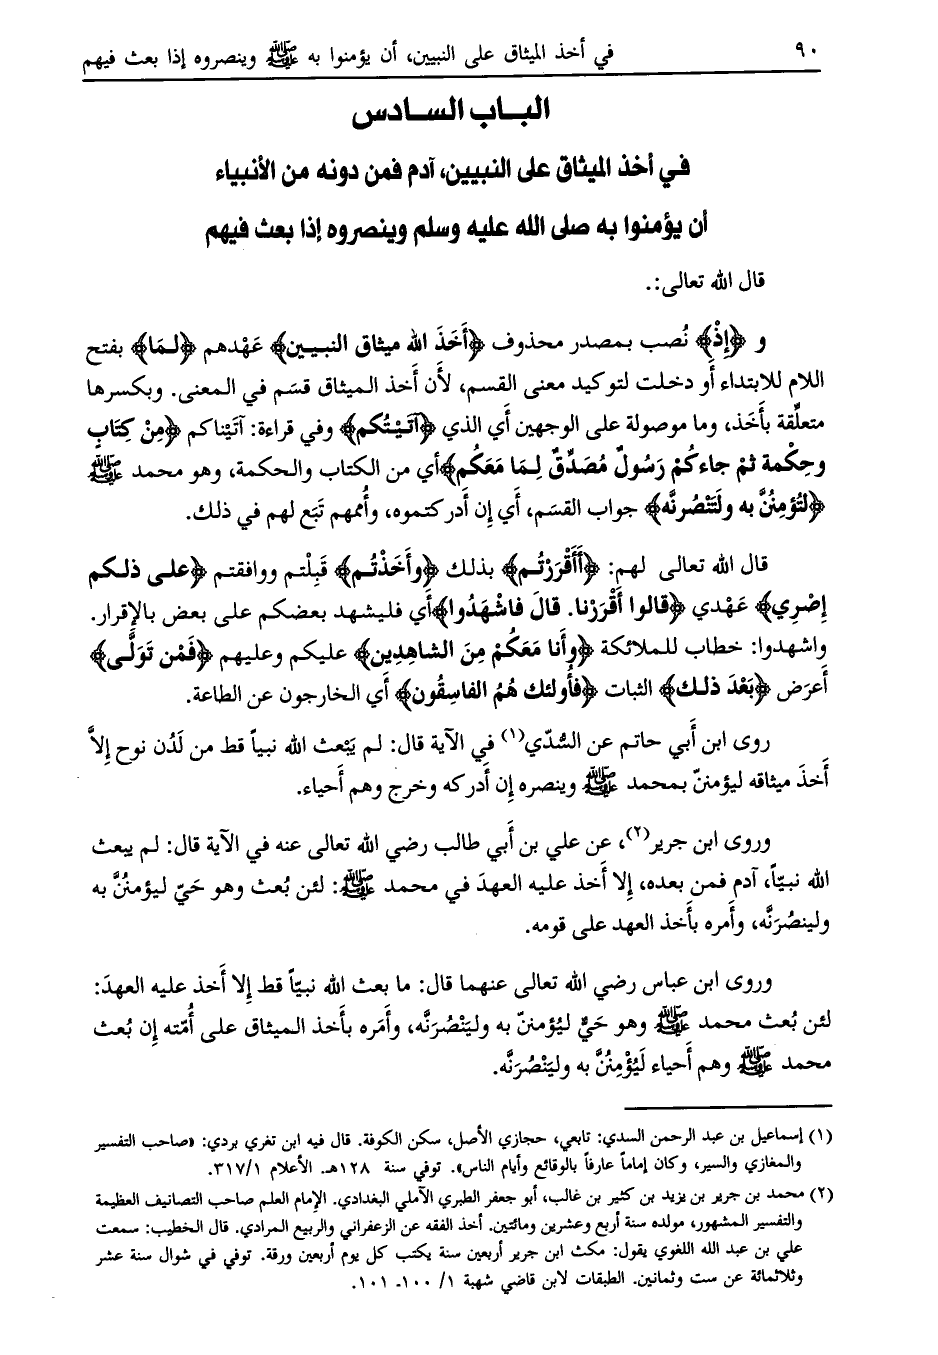 ٩٠ في أخذ الميثاق على النبيين، أن يؤمنوا به ﷺ وينصروه إذا بعث فيهم
البـاب السـادس
في أخذ الميثاق على النبيين، آدم فمن دونه من الأنبياء
أن يؤمنوا به صلى الله عليه وسلم وينصروه إذا بعث فيهم
قال الله تعالى:.
و ﴿إِذْ﴾ نُصب بمصدر محذوف ﴿أَخَذَ الله ميثاق النبيين﴾ عَهْدهم ﴿لـمَا﴾ بفتح
اللام للابتداء أَو دخلت لتوكيد معنى القسم، لأَن أخذ الميثاق قسَم في المعنى. وبكسرها
متعلِّقة بأَخذ، وما موصولة على الوجهين أَي الذي ﴿آتَيْتُكم﴾ وفي قراءة: آتَيْناكم ﴿مِنْ كِتَابٍ
وحِكْمة ثمْ جاءكُمْ رَسُولٌ مُصَدِّقٌ لِـمَا مَعَكُم﴾أي من الكتاب والحكمة، وهو محمد ﷺ
﴿لتُؤمِنُنَّ به ولَتَنْصُرنَّه﴾ جواب القسَم، أَي إن أدركتموه، وأُممهم تَبَع لهم في ذلك.
قال الله تعالى لهم: ﴿أَأَقْرَرْتُم﴾ بذلك ﴿وأَخَذْتُـم﴾ قَبِلْتم ووافقتم ﴿على ذلكم
إِصْرِي﴾ عَهْدي ﴿قالوا أَقْرَرْنا. قالَ فاشْهَدُوا﴾أَي فليشهد بعضكم على بعض بالإقرار.
واشهدوا: خطاب للملائكة ﴿وأَنا مَعَكُمْ مِنَ الشاهِدِين﴾ عليكم وعليهم ﴿فَمْن تَوَلَّى﴾
أَعرَض ﴿بَعْدَ ذلـك﴾ الثبات ﴿فأُولئك هُمُ الفاسِقُون﴾ أَي الخارجون عن الطاعة.
روى ابن أَبي حاتم عن السُّدّي(١) في الآية قال: لم يَبْعث الله نبياً قط من لَدُن نوح إلاَّ
أَخذَ ميثاقه ليؤمننّ بمحمد ﷺ وينصره إن أَدركه وخرج وهم أَحياء.
وروى ابن جرير(٢)، عن علي بن أَبي طالب رضي الله تعالى عنه في الآية قال: لم يبعث
الله نبيّاً، آدم فمن بعده، إلا أَخذ عليه العهدَ في محمد ﷺ: لئن بُعث وهو حَيّ ليؤمننُّ به
ولينصُرَنَّه، وأَمره بأَخذ العهد على قومه.
وروى ابن عباس رضي الله تعالى عنهما قال: ما بعث الله نبيّاً قط إلا أَخذ عليه العهدَ:
لئن بُعث محمد ﷺ وهو حَيٌّ ليُؤمننّ به وليَنْصُرَنَّه، وأَمَره بأَخذ الميثاق على أُمَّته إن بُعث
محمد ﷺ وهم أَحياء لَيُؤْمِنُنَّ به وليَنْصُرَنَّه.
(١) إسماعيل بن عبد الرحمن السدي: تابعي، حجازي الأصل، سكن الكوفة. قال فيه ابن تغري بردي: «صاحب التفسير
والمغازي والسير، وكان إماماً عارفاً بالوقائع وأيام الناس». توفي سنة ١٢٨هـ. الأعلام ٣١٧/١.
(٢) محمد بن جرير بن يزيد بن كثير بن غالب، أبو جعفر الطبري الآملي البغدادي. الإمام العلم صاحب التصانيف العظيمة
والتفسير المشهور، مولده سنة أربع وعشرين ومائتين. أخذ الفقه عن الزعفراني والربيع المرادي. قال الخطيب: سمعت
علي بن عبد الله اللغوي يقول: مكث ابن جرير أربعين سنة يكتب كل يوم أربعين ورقة. توفي في شوال سنة عشر
وثلاثمائة عن ست وثمانين. الطبقات لابن قاضي شهبة ١/ ١٠٠ـ ١٠١.